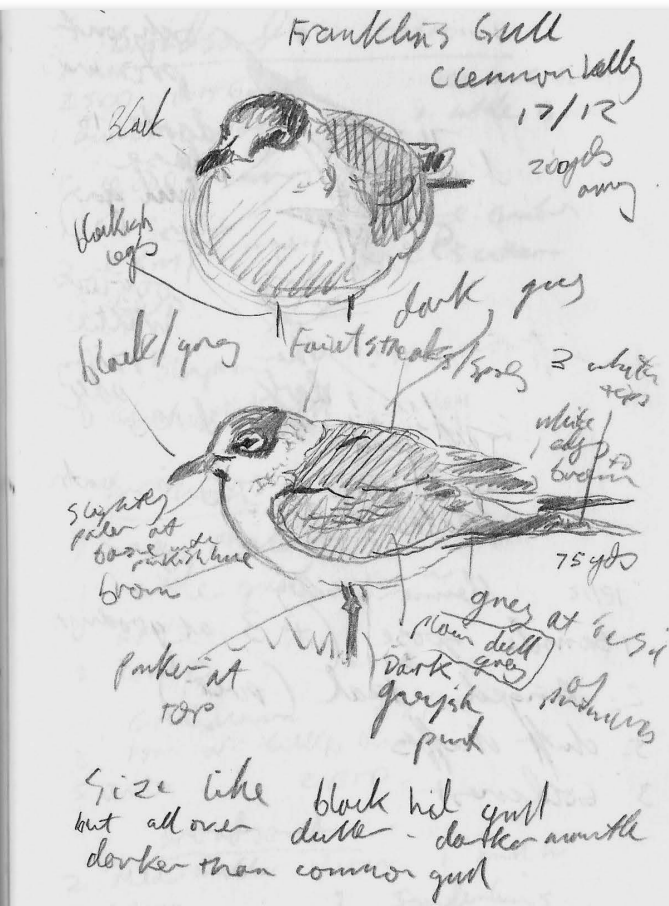 Franklin's Gull
Clennon Valley
17/12
Black
200yds
away
blackish
legs
dark grey
black/grey
Faint streaks/spots
3 white
tips
white
edges to
brown
slightly
paler at
base with
pinkish hue
brown
75 yds
grey at
plain dull
grey
of
primaries
pinker at
TOP
Dark
greyish
pink
Size like black hd gull
but all over duller - darker mantle
darker than common gull